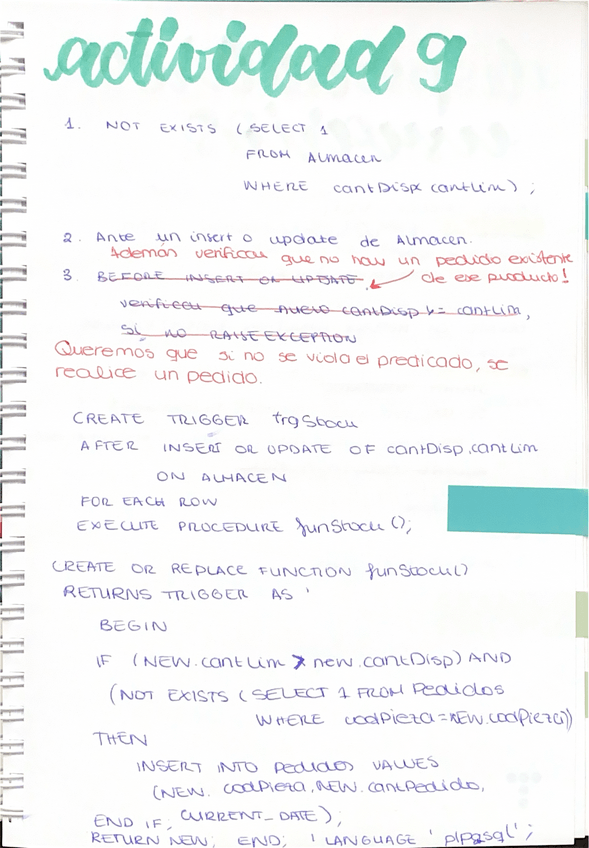 actividad 9
1. NOT EXISTS (SELECT 1
FROM Almacen
WHERE cantDisp < cantLim);
2. Ante un insert o update de Almacen.
Además verificar que no hay un pedido existente
de ese producto!
3. BEFORE INSERT OR UPDATE
verificar que nuevo cantDisp >= cantLim,
Si no RAISE EXCEPTION
Queremos que si no se viola el predicado, se
realice un pedido.
CREATE TRIGGER trgStock
AFTER INSERT OR UPDATE OF cantDisp, cantLim
ON ALMACEN
FOR EACH ROW
EXECUTE PROCEDURE funStock ();
CREATE OR REPLACE FUNCTION funStock()
RETURNS TRIGGER AS '
BEGIN
IF (NEW.cantLim > new.cantDisp) AND
(NOT EXISTS (SELECT 1 FROM Pedidos
WHERE codPieza = NEW.codPieza))
THEN
INSERT INTO Pedidos VALUES
(NEW. codPieza, NEW. cantPedido,
CURRENT_DATE);
END IF;
RETURN NEW; END; ' LANGUAGE ' plpgsql';